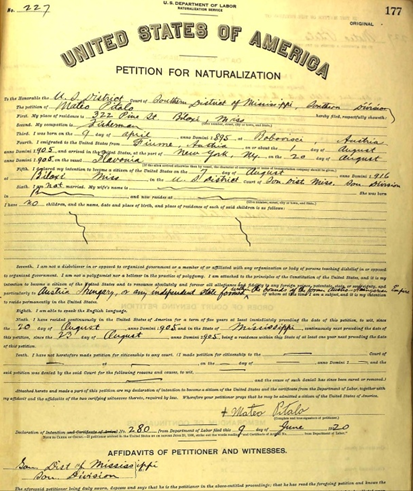 No. 227
U. S. DEPARTMENT OF LABOR
NATURALIZATION SERVICE
177
ORIGINAL
UNITED STATES OF AMERICA
PETITION FOR NATURALIZATION
To the Honorable the U.S. District Court of Southern District of Mississippi, Southern Division
The petition of Mateo Pitalo hereby filed, respectfully showeth:
First. My place of residence is 322 Pine St. Biloxi, Miss
Second. My occupation is Fisherman
Third. I was born on the 9 day of April anno Domini 1895 at Bobovisce Austria
Fourth. I emigrated to the United States from Fiume Austria on or about the day of August
anno Domini 1905, and arrived in the United States, at the port of New York, Ny. on the 20 day of August
anno Domini 1905 on the vessel Slavonia
Fifth. I declared my intention to become a citizen of the United States on the 7 day of August anno Domini 1916
at Biloxi Miss in the U.S. District Court of Sou Dist Miss. Sou Division
Sixth. I am not married. My wife's name is She was born
and now resides at
I have no children, and the name, date and place of birth, and place of residence of each of said children is as follows:
Seventh. I am not a disbeliever in or opposed to organized government or a member of or affiliated with any organization or body of persons teaching disbelief in or opposed
to organized government. I am not a polygamist nor a believer in the practice of polygamy. I am attached to the principles of the Constitution of the United States, and it is my
intention to become a citizen of the United States and to renounce absolutely and forever all allegiance and fidelity to any foreign prince, potentate, state, or sovereignty, and
particularly to Austria Hungary, or any independent state formerly within the bounds of the former Austro Hungarian Empire
of whom at this time I am a subject, and it is my intention
to reside permanently in the United States.
Eighth. I am able to speak the English language.
Ninth. I have resided continuously in the United States of America for a term of five years at least immediately preceding the date of this petition, to wit, since
the 20 day of August anno Domini 1905 and in the State of Mississippi continuously next preceding the date of
this petition, since the day of August anno Domini 1905 being a residence within this State of at least one year next preceding the date
of this petition.
Tenth. I have not heretofore made petition for citizenship to any court. (I made petition for citizenship to the Court of
at on the day of anno Domini 1 and the
said petition was denied by the said Court for the following reasons and causes, to wit,
and the cause of such denial has since been cured or removed.)
Attached hereto and made a part of this petition are my declaration of intention to become a citizen of the United States and the certificate from the Department of Labor, together with
my affidavit and the affidavits of the two verifying witnesses thereto, required by law. Wherefore your petitioner prays that he may be admitted a citizen of the United States of America.
Mateo Pitalo
Declaration of Intention No. 280 from Department of Labor filed this 9 day of June 1920
AFFIDAVITS OF PETITIONER AND WITNESSES.
Sou Dist of Mississippi
Sou Division